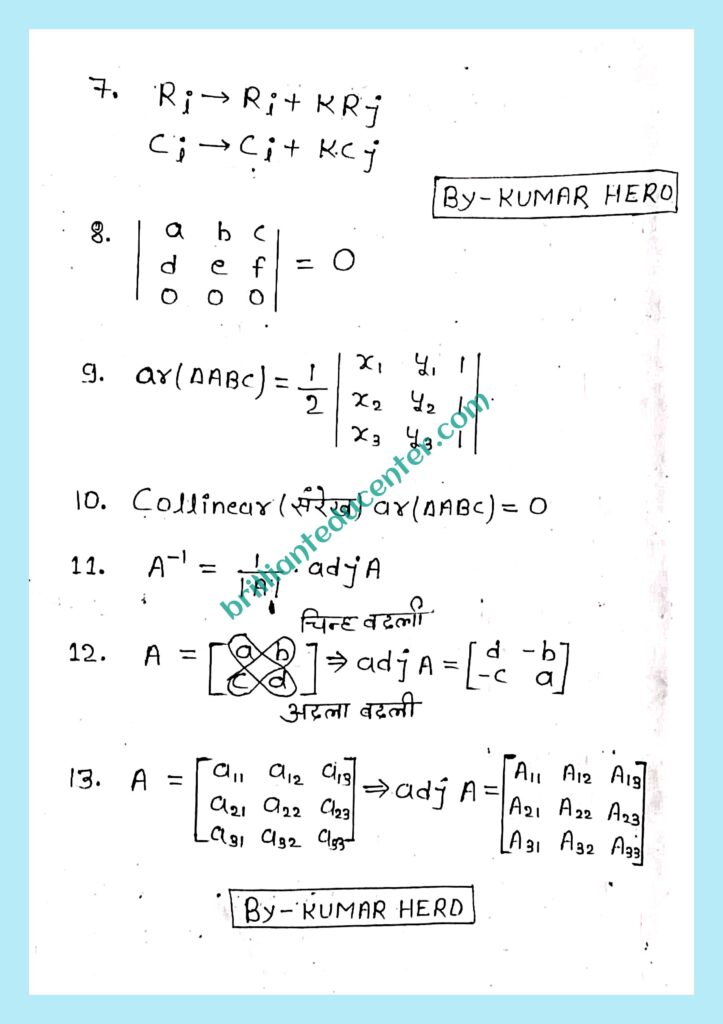 7. Ri → Ri + KRj
Ci → Ci + KCj
By-KUMAR HERO
8. | a b c |
| d e f | = 0
| 0 0 0 |
9. ar(ΔABC) = 1/2 | x₁ y₁ 1 |
| x₂ y₂ 1 |
| x₃ y₃ 1 |
brillianteducenter.com
10. Collinear (संरेख) ar(ΔABC) = 0
11. A⁻¹ = 1/|A| · adj A
चिन्ह बदली
12. A = [a b] ⇒ adj A = [d -b]
[c d] [-c a]
अदला बदली
13. A = [a₁₁ a₁₂ a₁₃] ⇒ adj A = [A₁₁ A₁₂ A₁₃]
[a₂₁ a₂₂ a₂₃] [A₂₁ A₂₂ A₂₃]
[a₃₁ a₃₂ a₃₃] [A₃₁ A₃₂ A₃₃]
By-KUMAR HERO